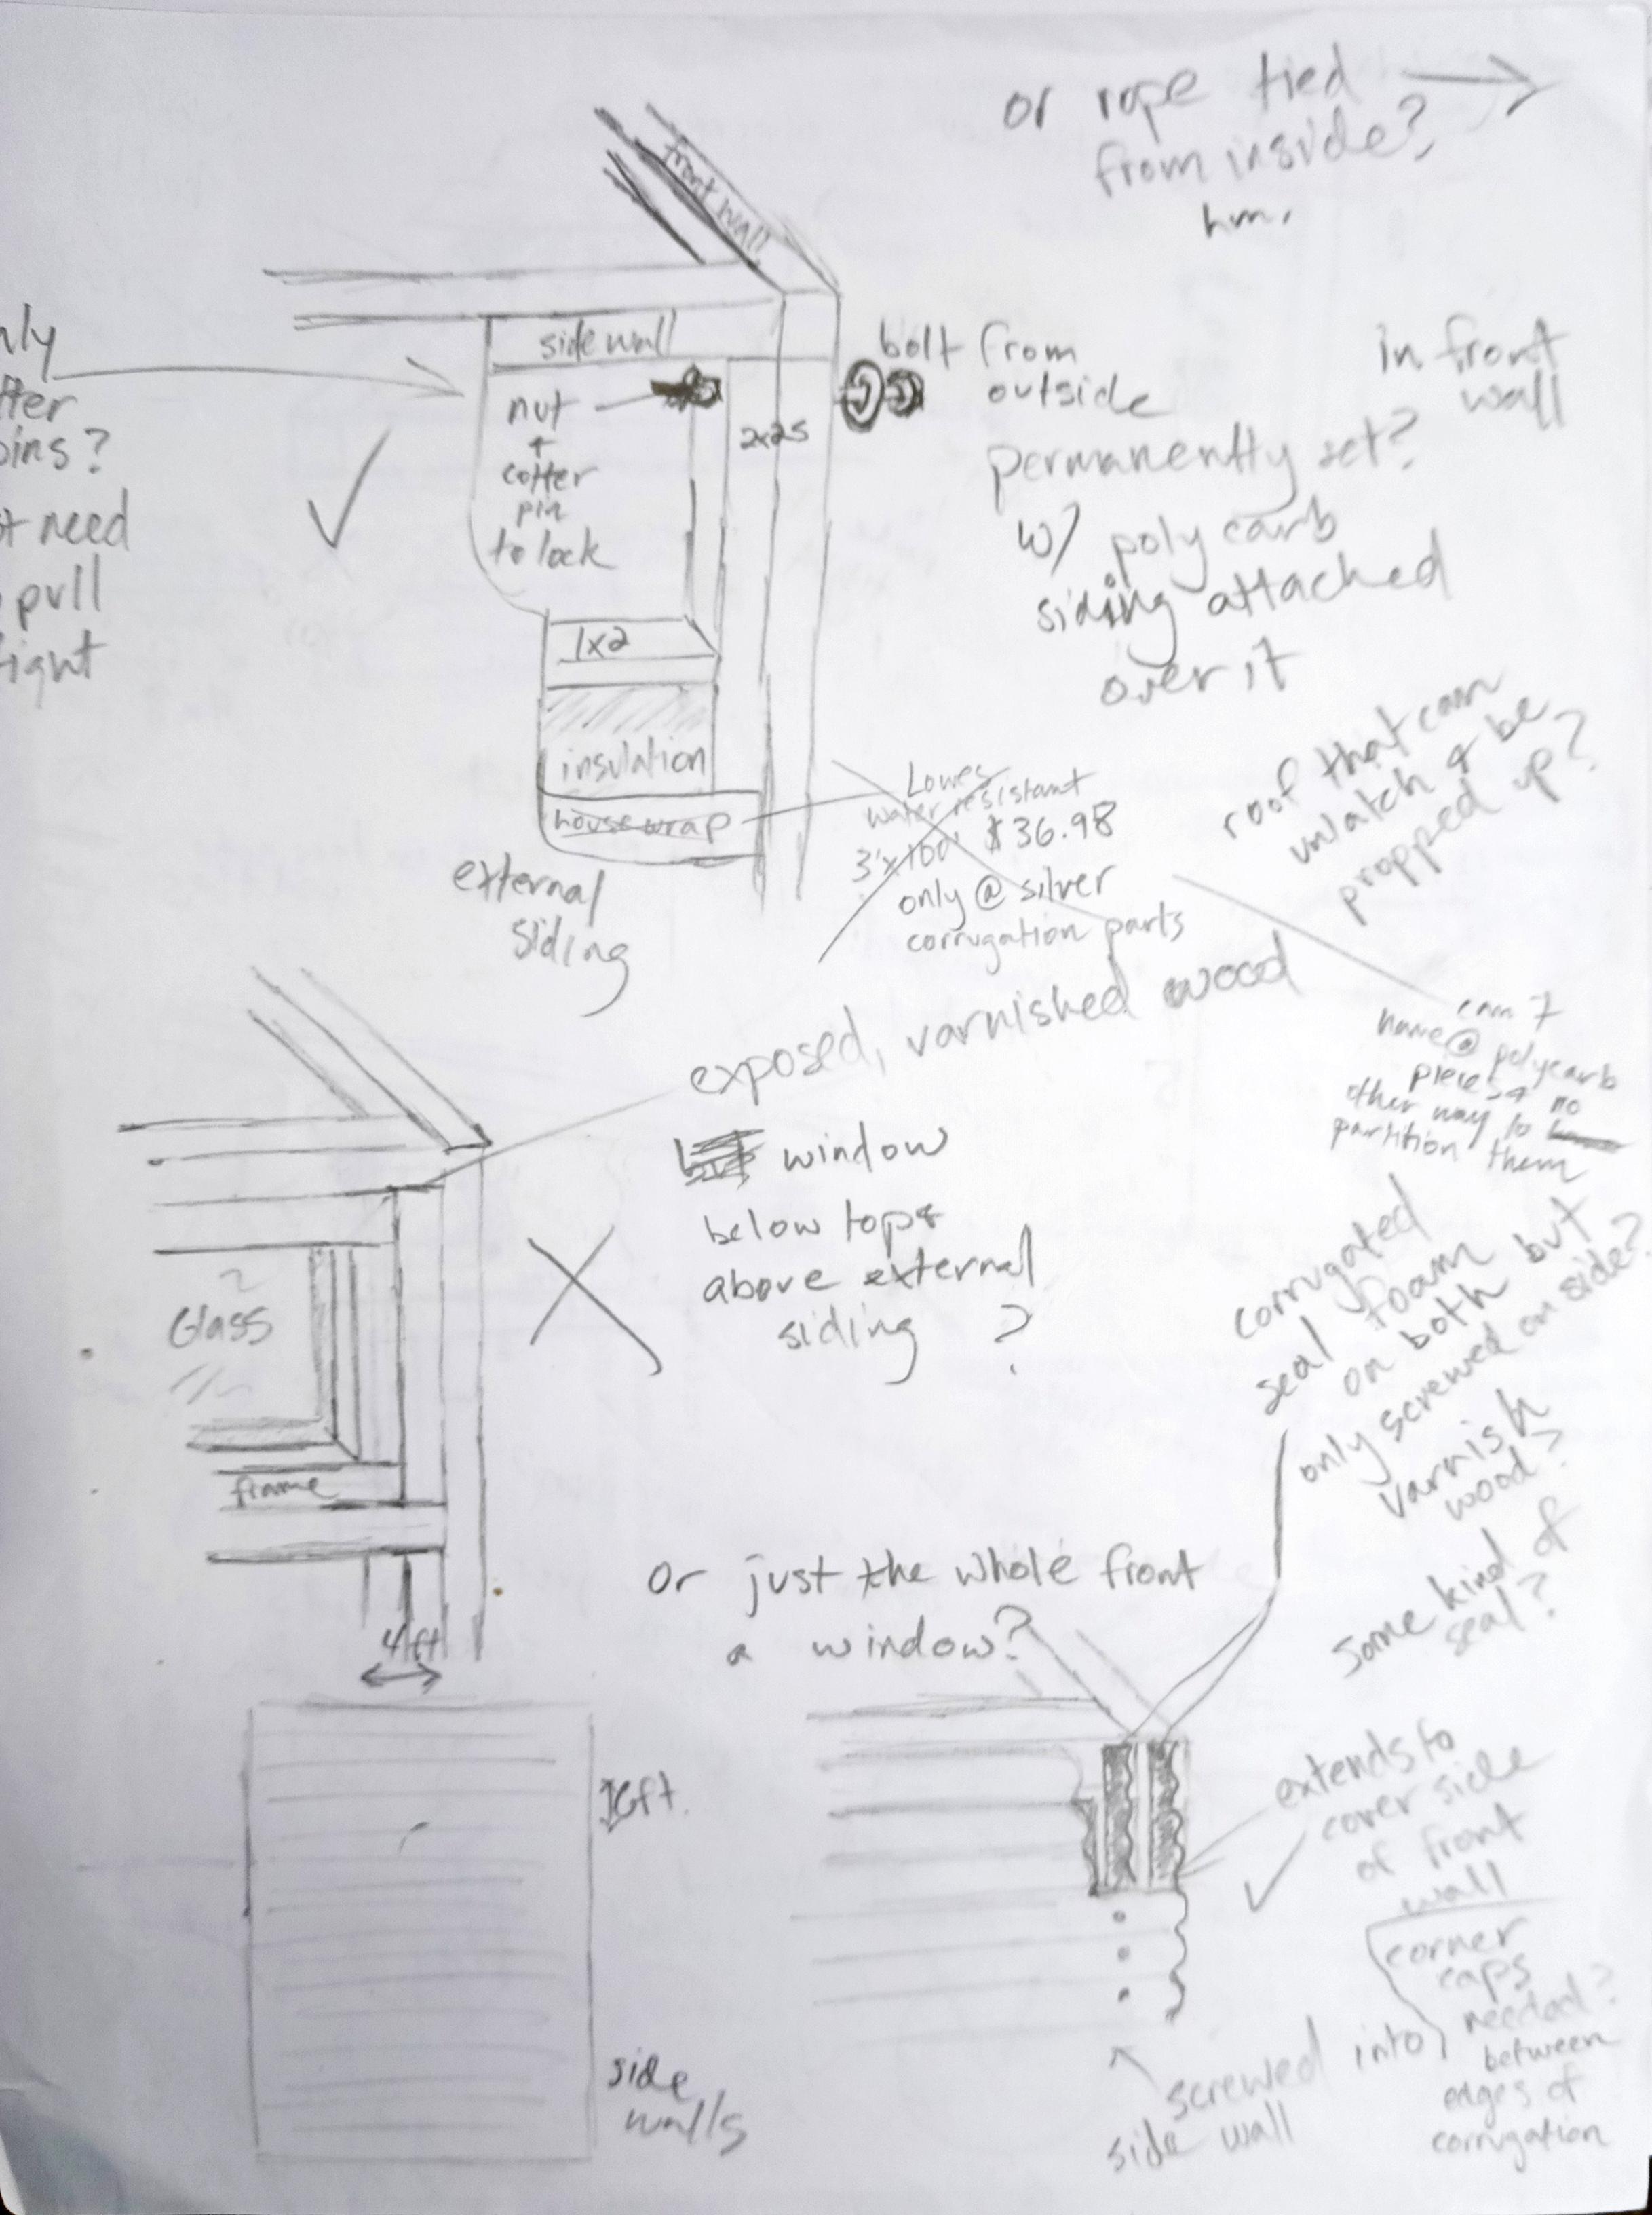 or rope tied
from inside?
hm.
front wall
side wall
nut
+
cotter
pin
to lock
2x2s
bolt from
outside
in front
wall
permanently set?
w/ poly carb
siding attached
over it
pins?
need
pull
tight
1x2
insulation
house wrap
external
siding
Lowes
water resistant
3'x100' $36.98
only @ silver
corrugation parts
roof that can
unlatch & be
propped up?
exposed, varnished wood
window
below top &
above external
siding ?
polycarb
pieces & no
other way to
partition them
Glass
frame
4ft
corrugated
seal foam
on both but
only screwed on side?
varnish
wood?
some kind of
seal?
or just the whole front
a window?
6ft.
side
walls
extends to
cover side
of front
wall
corner
caps
needed?
between
edges of
corrugation
screwed into
side wall